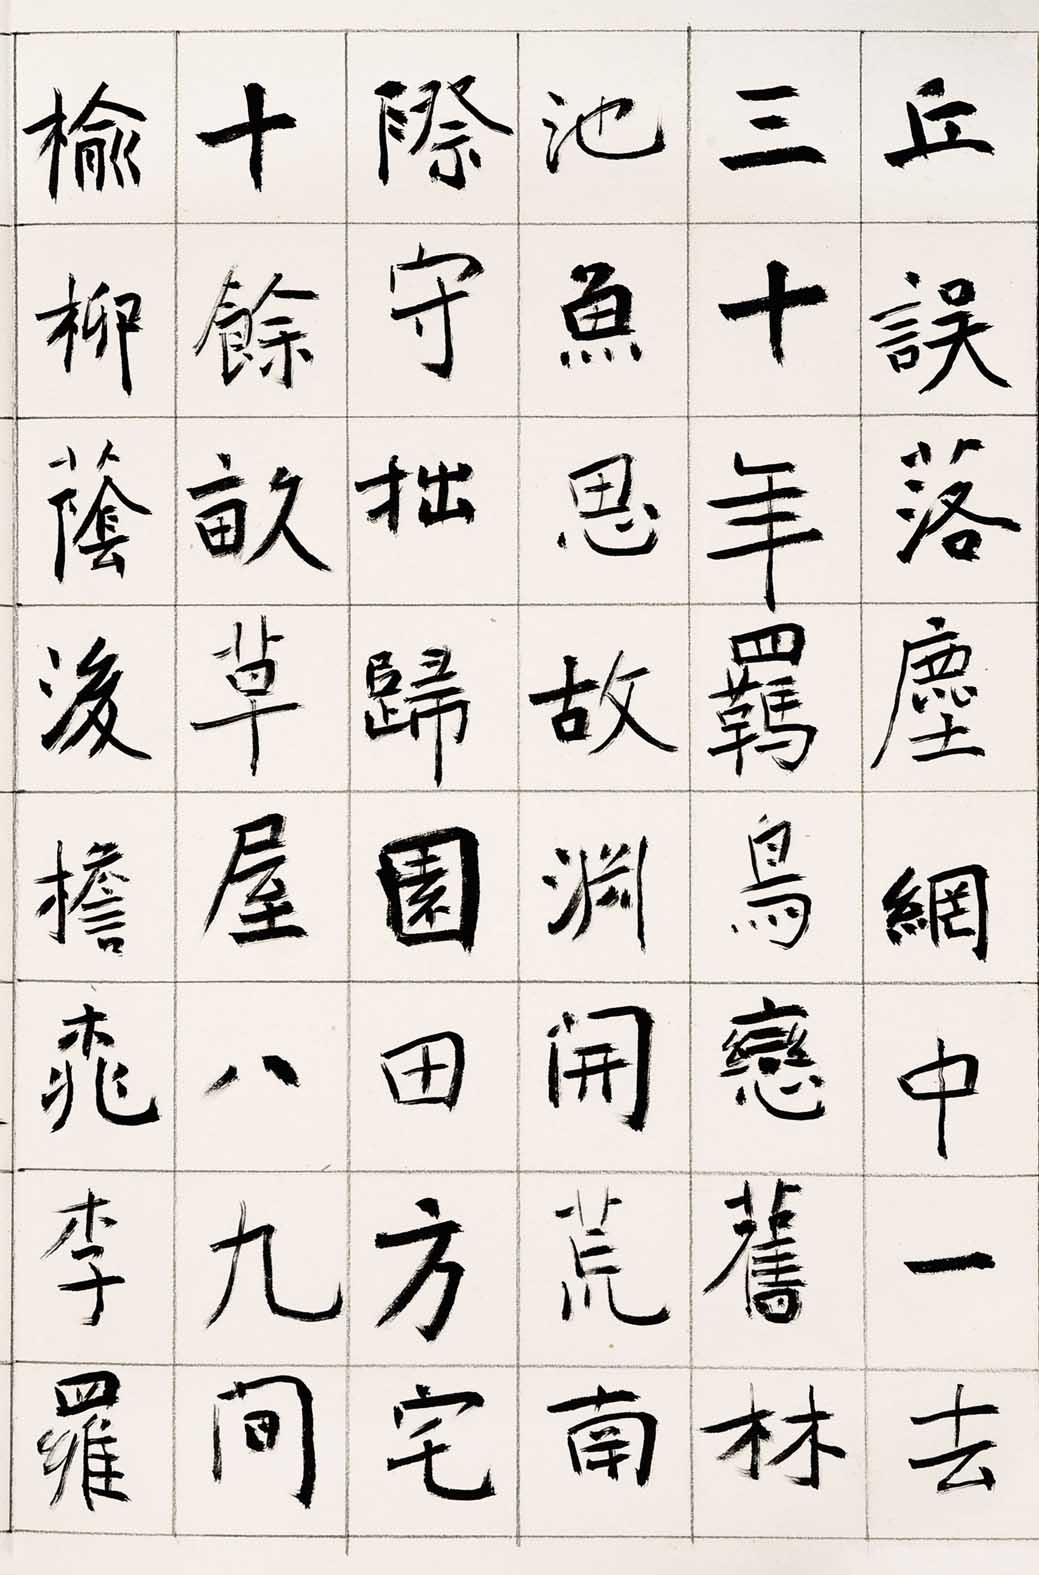 丘誤落塵網中一去
三十年羈鳥戀舊林
池魚思故淵開荒南
際守拙歸園田方宅
十餘畝草屋八九間
榆柳蔭後檐桃李羅